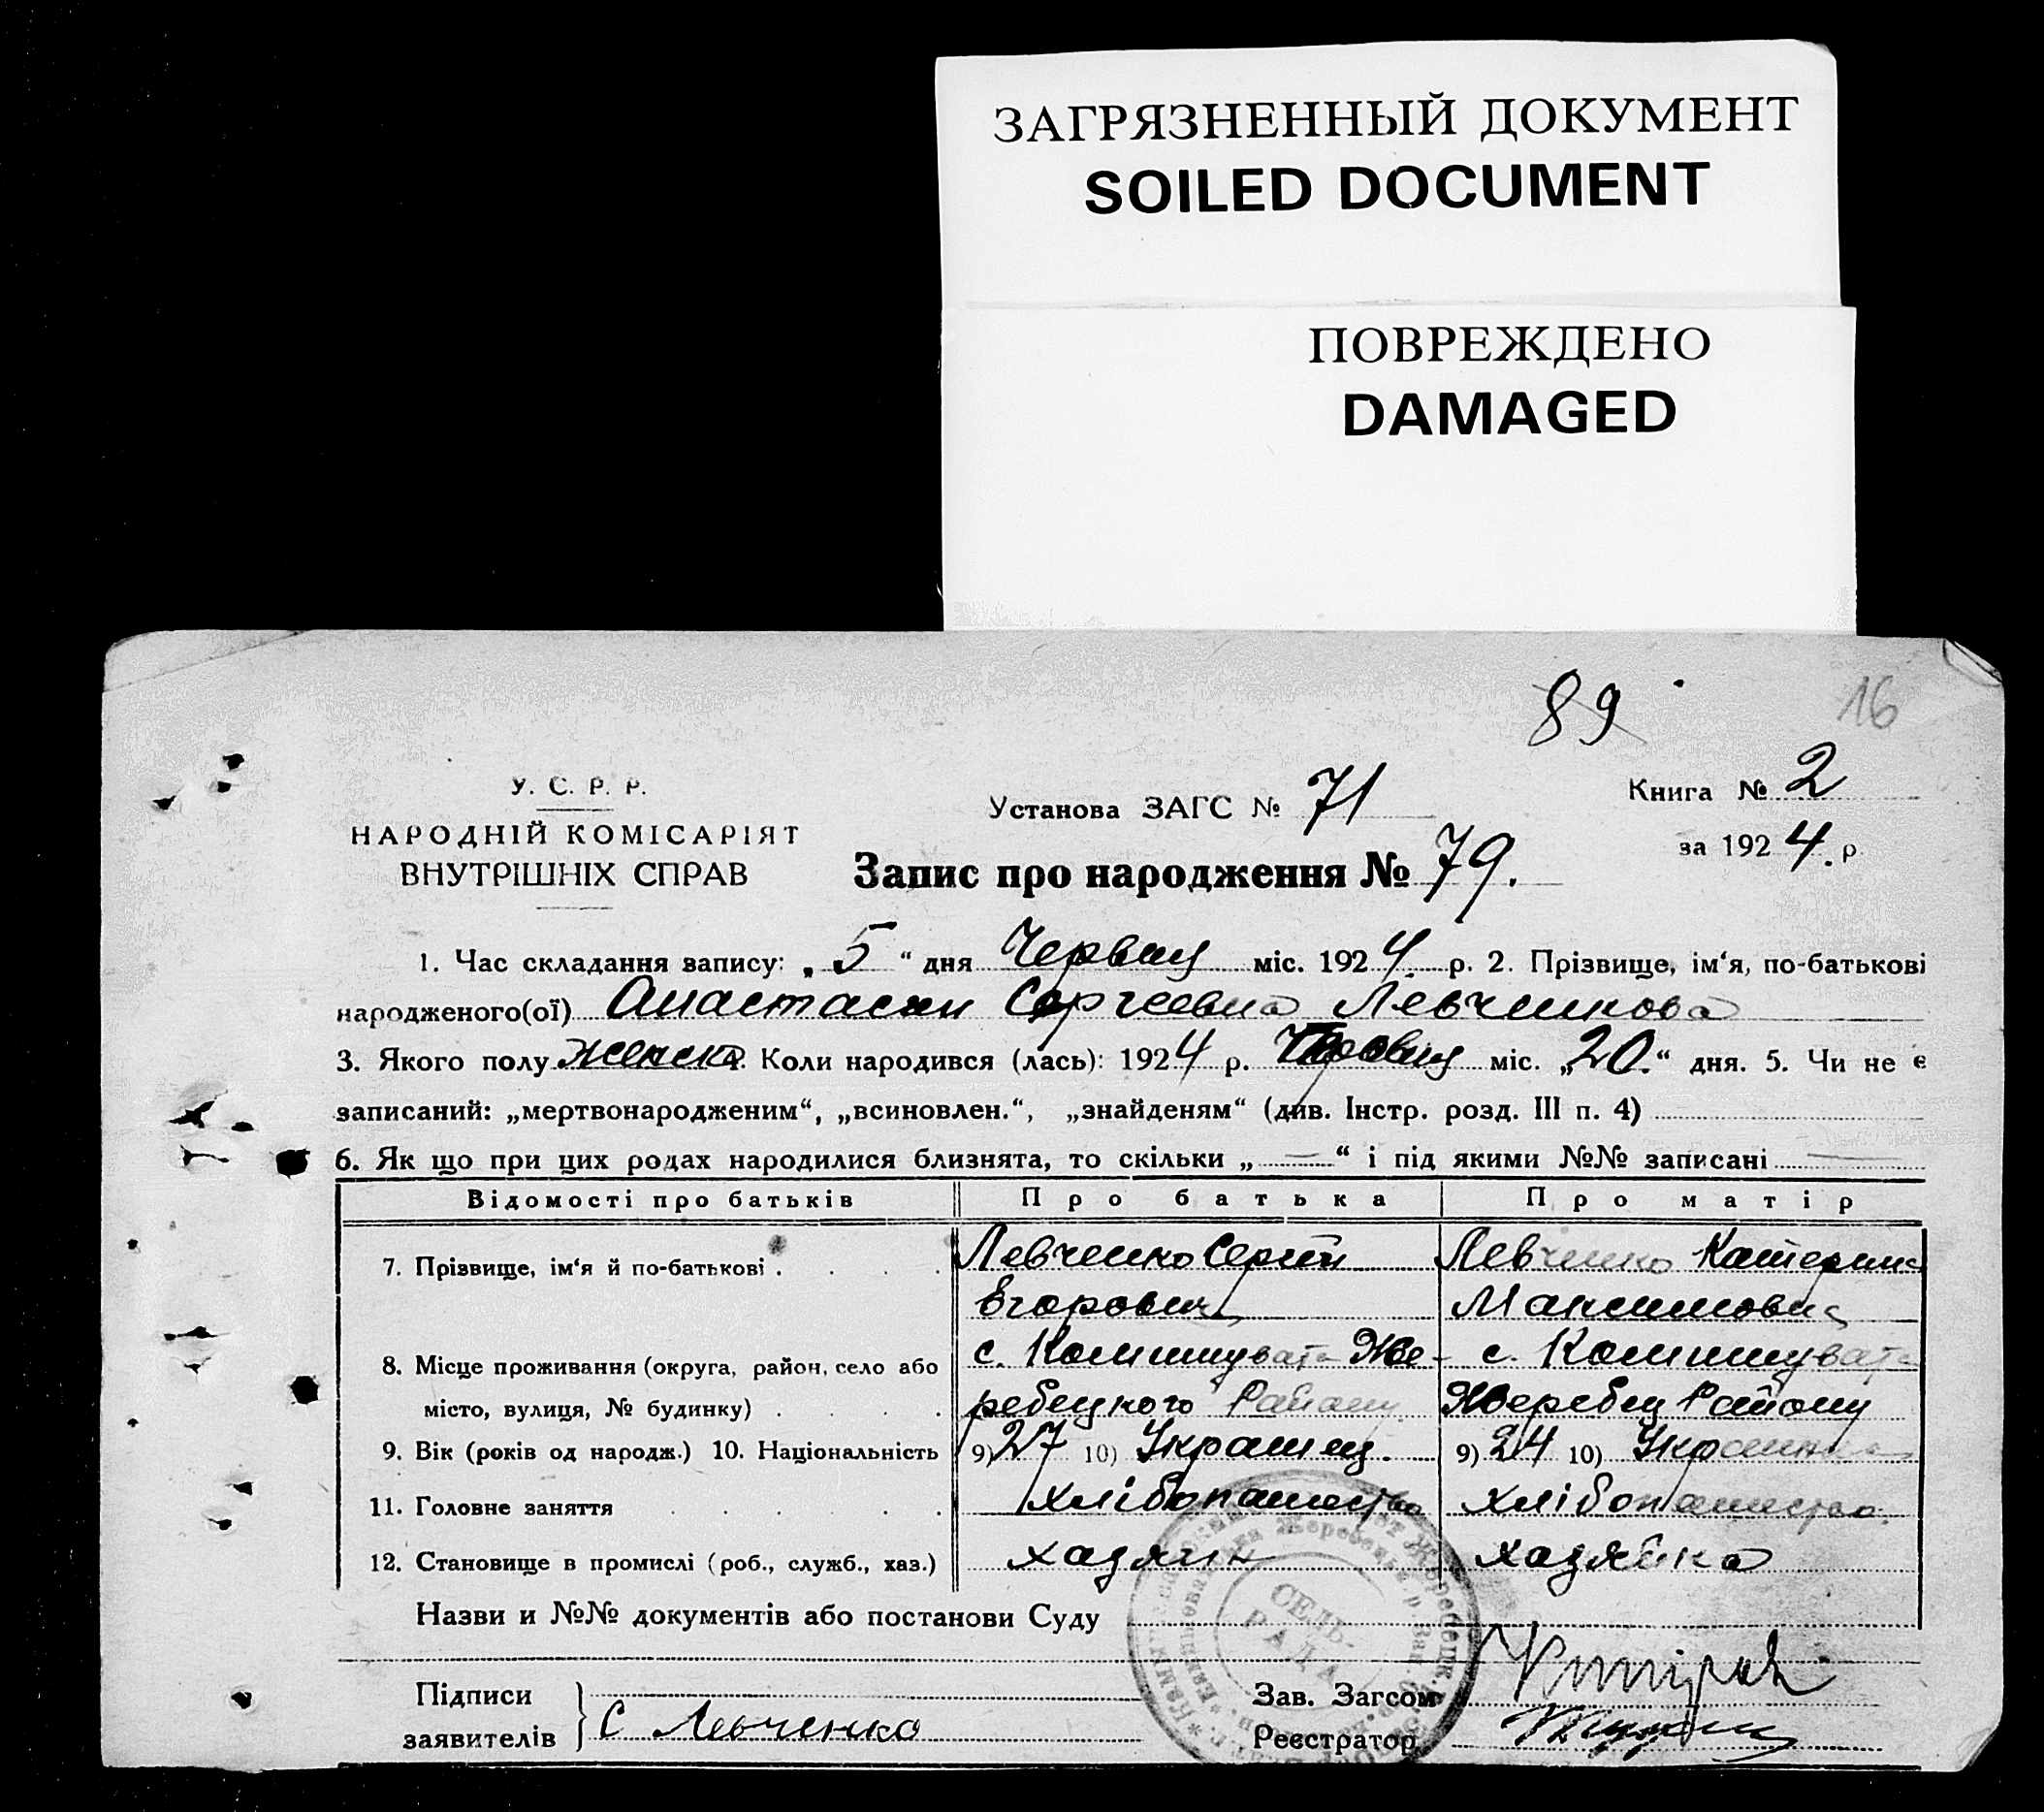 ЗАГРЯЗНЕННЫЙ ДОКУМЕНТ
SOILED DOCUMENT
ПОВРЕЖДЕНО
DAMAGED
89
16
У. С. Р. Р.
НАРОДНІЙ КОМІСАРІЯТ
ВНУТРІШНІХ СПРАВ
Установа ЗАГС № 71
Книга № 2
за 1924 р.
Запис про народження № 79.
1. Час складання запису: „5“ дня Червня міс. 1924 р. 2. Прізвище, ім‘я, по-батькові
народженого(ої) Анастасия Сергеевна Левченкова
3. Якого полу женска. Коли народився (лась): 1924 р. міс. „20.“ дня. 5. Чи не є
записаний: „мертвонародженим“, „всиновлен.“, „знайденям“ (див. Інстр. розд. III п. 4)
6. Як що при цих родах народилися близнята, то скільки „—“ і під якими №№ записані —
Відомості про батьків Про батька Про матір
7. Прізвище, ім‘я й по-батькові Левченко Сергій Левченко Катерина
Егорович Максимовна
8. Місце проживання (округа, район, село або с. Комишувата Же- с. Комишувата
місто, вулиця, № будинку) ребецкого Району Жеребец Району
9. Вік (років од народж.) 10. Національність 9) 27 10) Украинец. 9) 24 10) Украинка
11. Головне заняття хлібопашество хлібопашество.
12. Становище в промислі (роб., служб., хаз.) хадяин хадяйка
Назви и №№ документів або постанови Суду
СЕЛЬ-
РАДА
Підписи
заявителів С Левченко
Зав. Загсом
Реєстратор